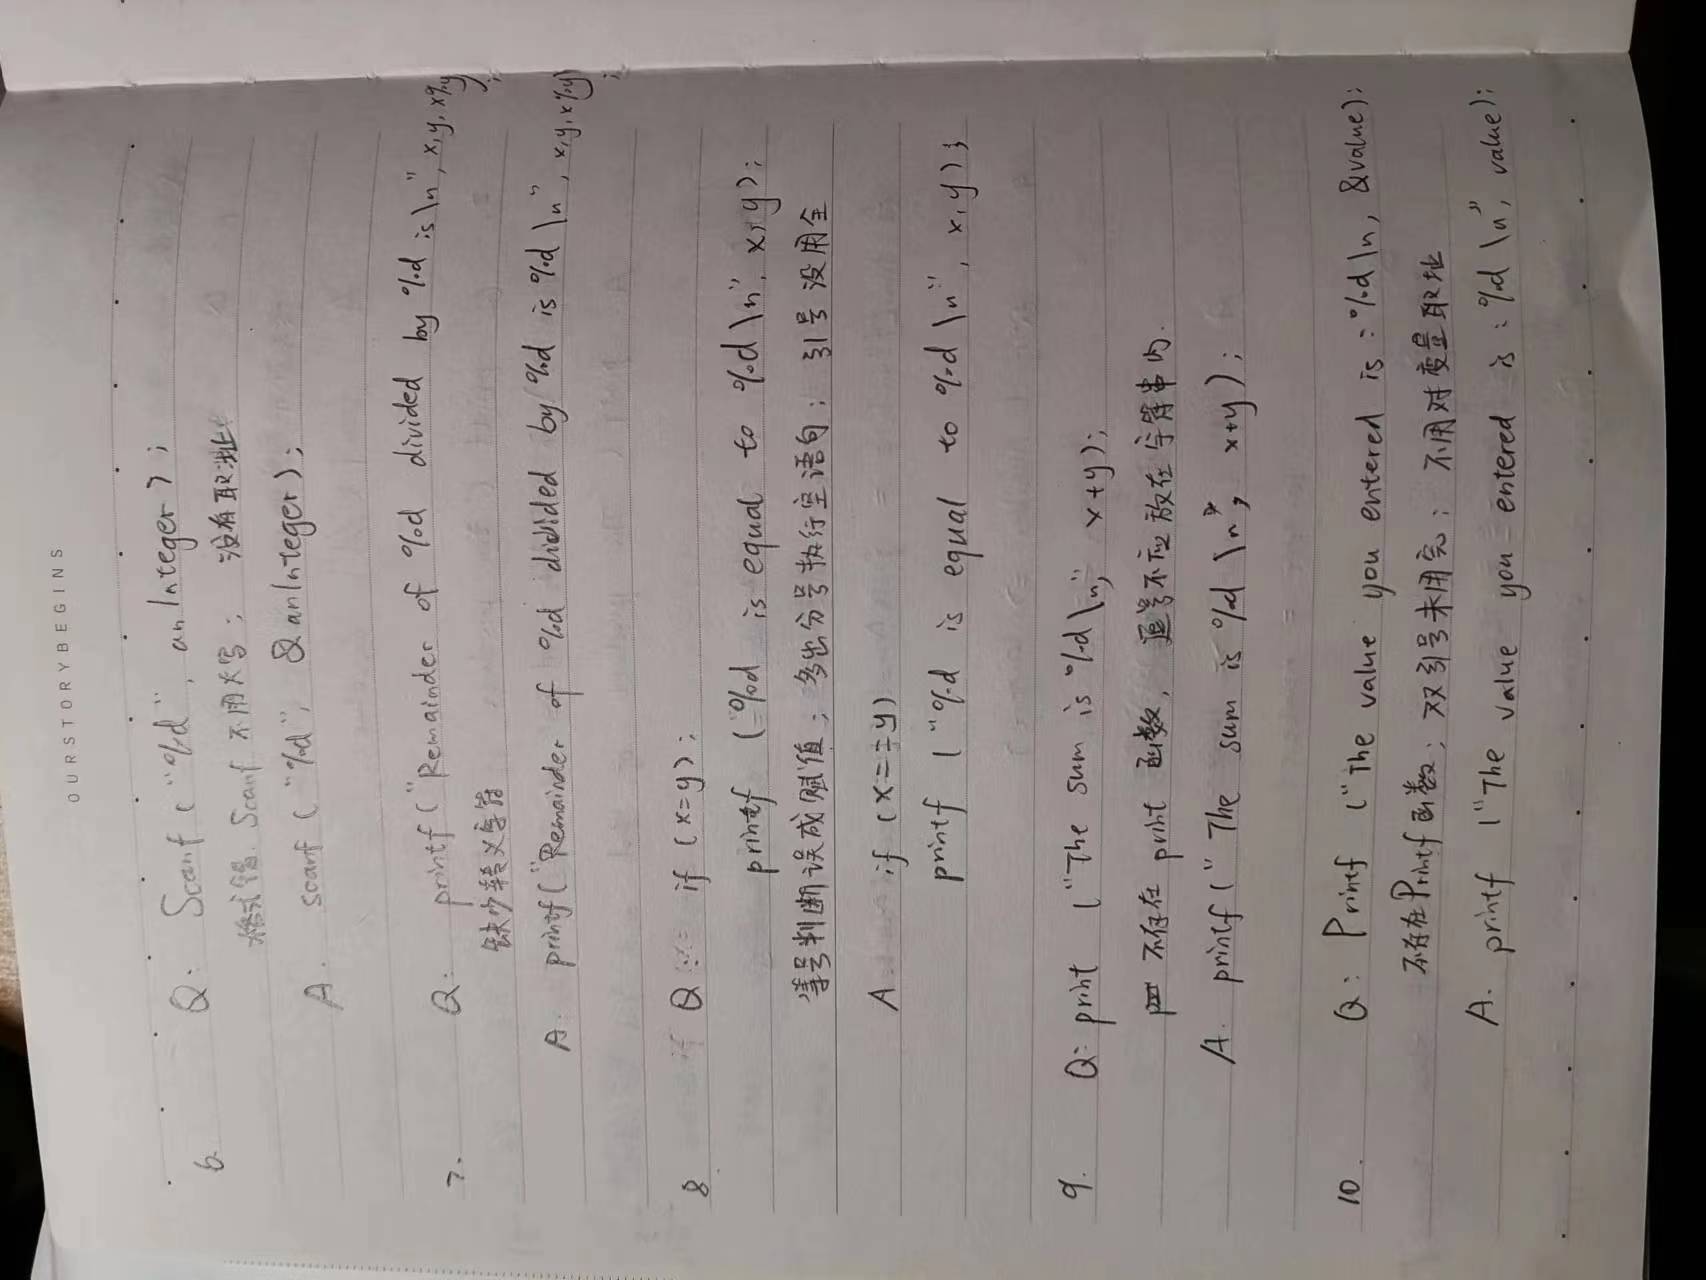 OURSTORYBEGINS
6. Q: Scanf ("%d", anInteger);
格式错. Scanf 不用大写; 没有取址
A. scanf ("%d", &anInteger);
7. Q: printf("Remainder of %d divided by %d is\n", x,y,x%y);
缺少转义字符
A: printf("Remainder of %d didided by %d is %d\n", x,y,x%y);
8 Q if (x=y);
printf ("%d is equal to %d\n", x,y);
等号判断误成赋值; 多出分号执行空语句; 引号没用全
A. if (x==y)
printf ("%d is equal to %d\n", x,y);
9. Q: print ("The sum is %d\n," x+y);
不存在 print 函数, 逗号不应放在字符串内.
A. printf("The sum is %d\n", x+y);
10. Q: Printf ("The value you entered is: %d\n, &value);
不存在Printf函数; 双引号未用完; 不用对变量取址
A. printf ("The value you entered is: %d\n", value);